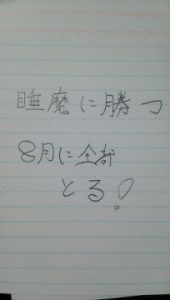 睡魔に勝つ
8月に全部
とる!